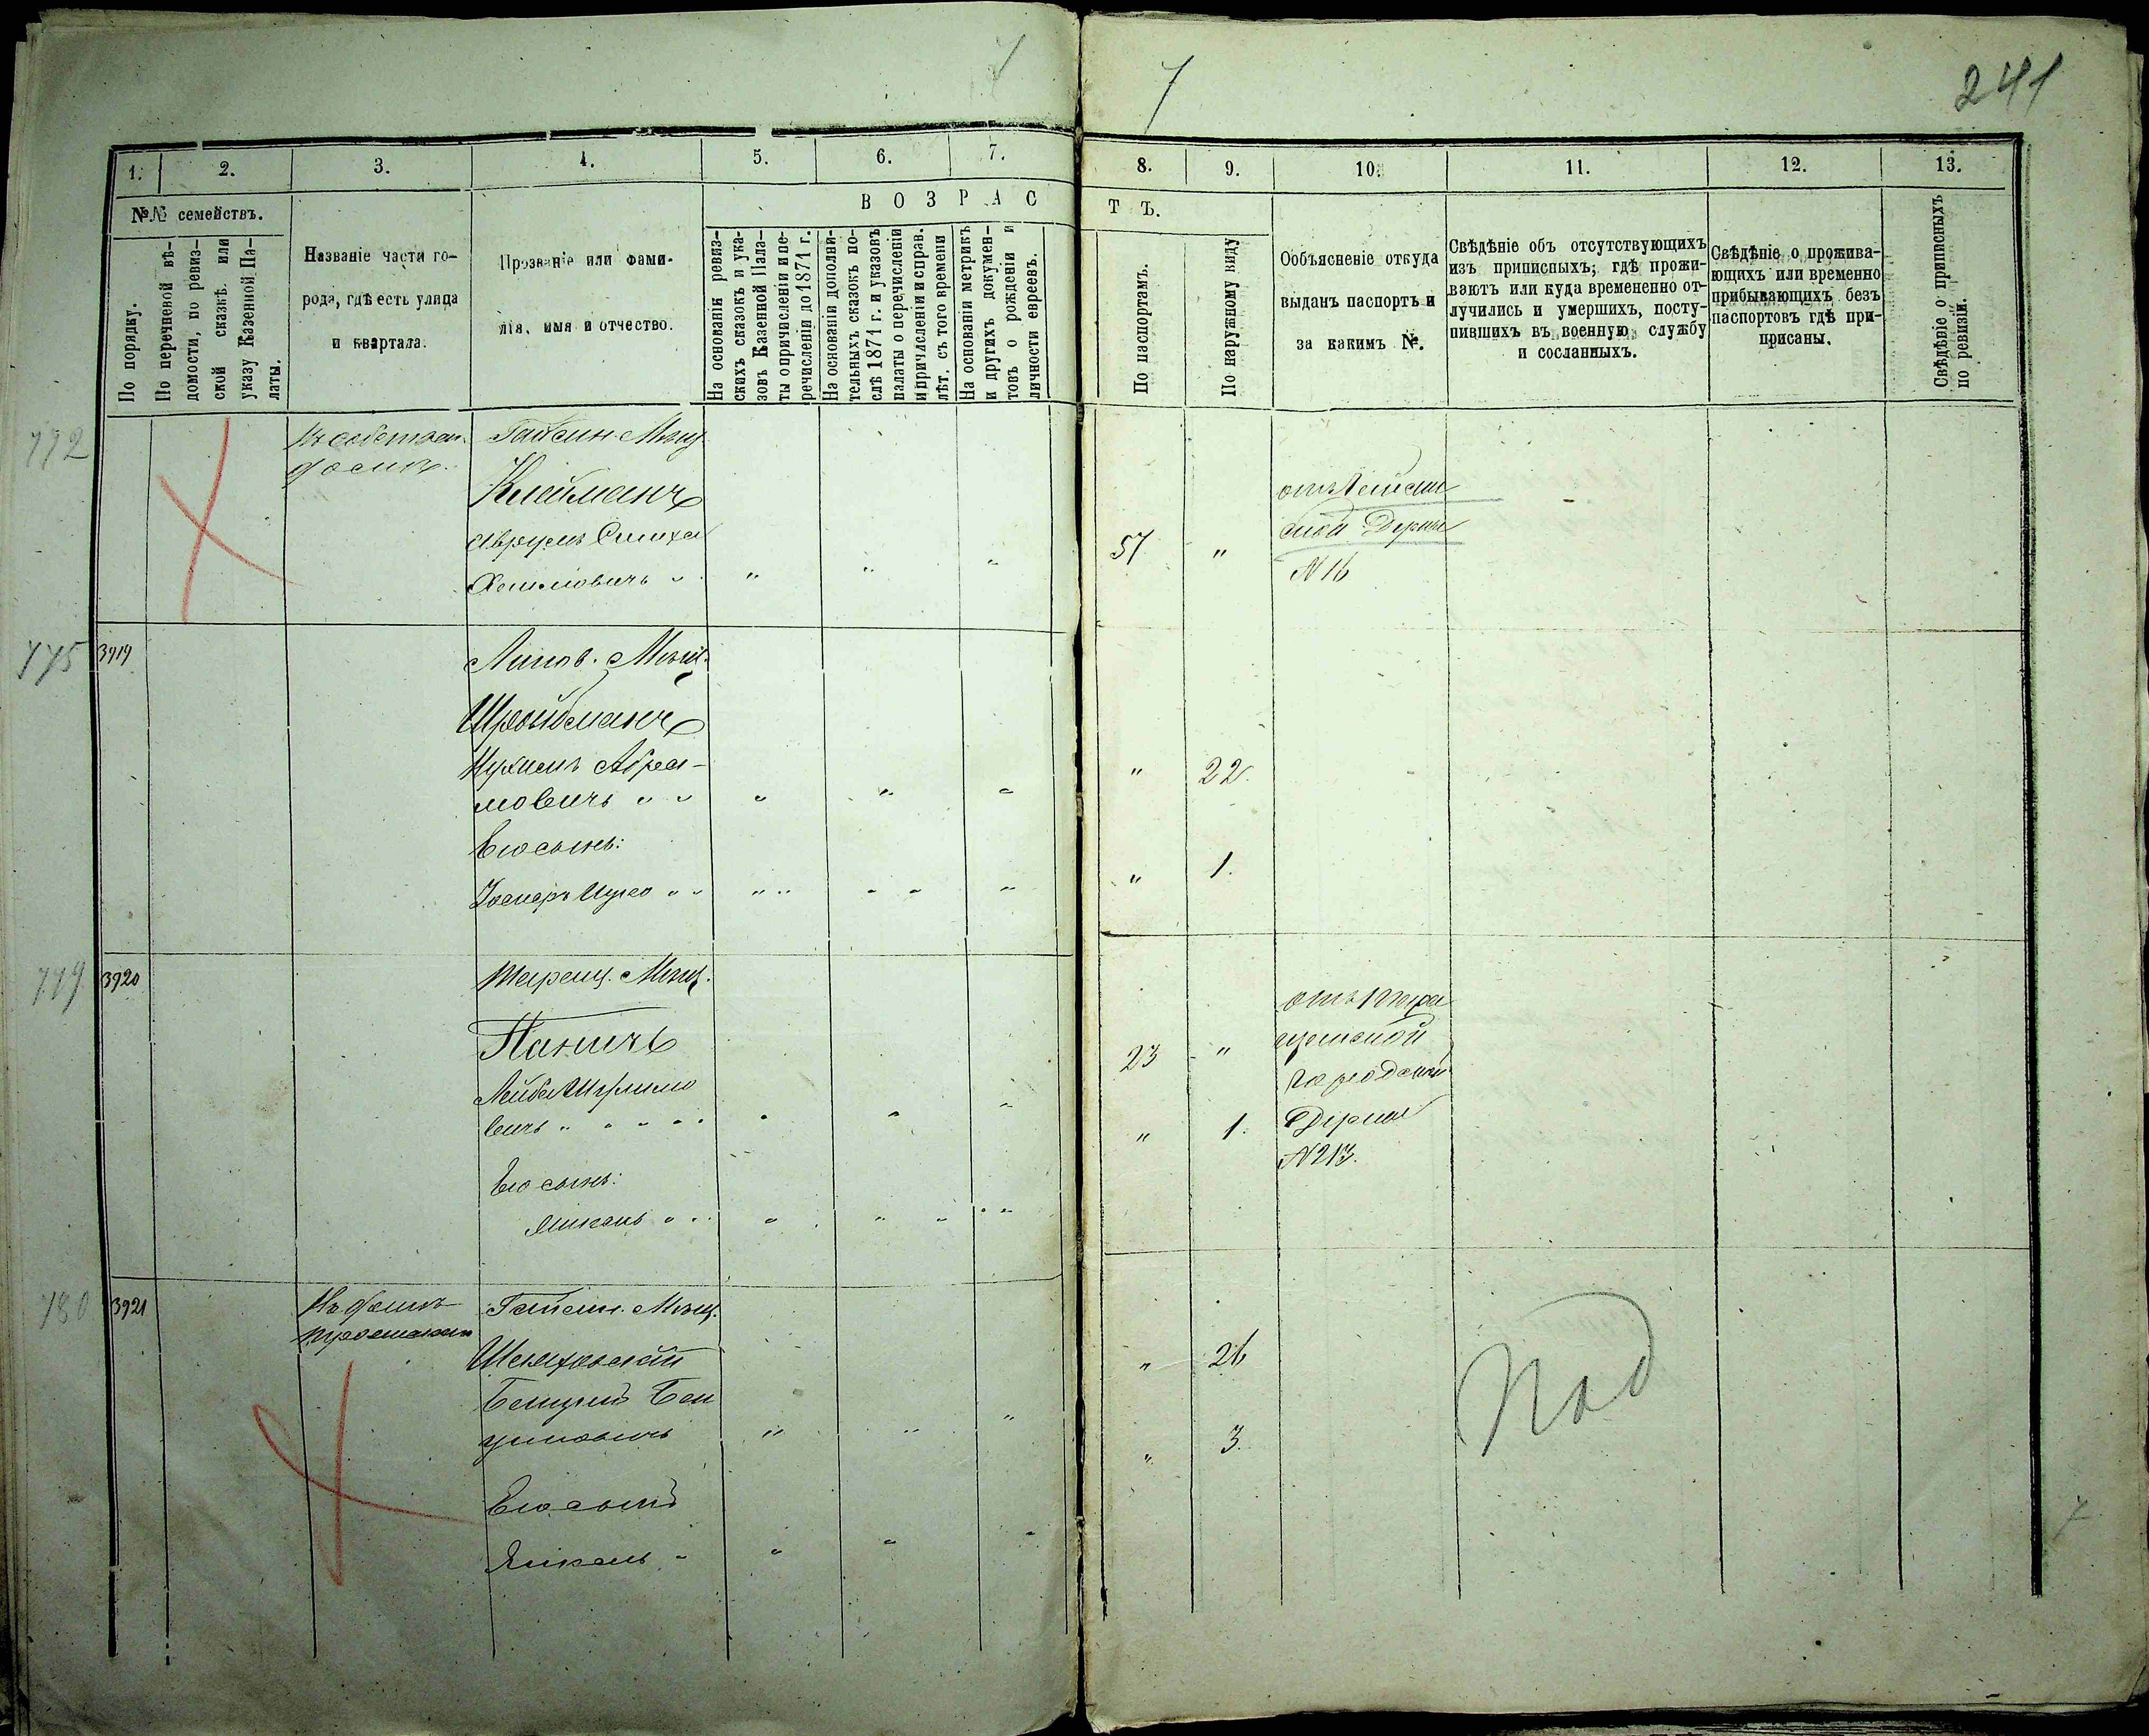 7
7
241
1.
2.
3.
4.
5.
6.
7.
8.
9.
10.
11.
12.
13.
№№ семействъ.
По порядку.
По перечневой вѣ-
домости, по ревиз-
ской сказкѣ или
указу Казенной Па-
латы.
Названіе части го-
рода, гдѣ есть улица
и квартала.
Прозваніе или фами-
лія, имя и отчество.
ВОЗРАСТЪ.
На основаніи ревиз-
скихъ сказокъ и ука-
зовъ Казенной Пала-
ты о причисленіи и пе-
речисленіи до 1871 г.
На основаніи дополни-
тельныхъ сказокъ по-
слѣ 1871 г. и указовъ
палаты о перечисленіи
и причисленіи и справ.
лѣт. съ того времени
На основаніи метрикъ
и другихъ докумен-
товъ о рожденіи и
личности евреевъ.
По паспортамъ.
По наружному виду
Ообъясненіе откуда
выданъ паспортъ и
за какимъ №.
Свѣдѣніе объ отсутствующихъ
изъ приписныхъ; гдѣ прожи-
ваютъ или куда времененно от-
лучились и умершихъ, посту-
пившихъ въ военную службу
и сосланныхъ.
Свѣдѣніе о прожива-
ющихъ или временно
прибывающихъ безъ
паспортовъ гдѣ при-
писаны.
Свѣдѣніе о приписныхъ
по ревизіи.
772
Гайсин. Мѣщ.
Клейманъ
Аврумъ Симха
57 "
№ 16
775
3919
Липов. Мѣщ.
Шройтманъ
Нухимъ Абра-
мовичъ " "
" 22.
Его сынъ:
" 1.
779
3920
Таращ. Мѣщ.
Паничъ
Лейба Шулимо
вичъ " "
23 "
отъ Тара
щанской
городской
Думы
№ 213.
Его сынъ:
" 1.
780
3921
Гайсин. Мѣщ.
" 26
Его сынъ
Янкель "
" 3.
Под